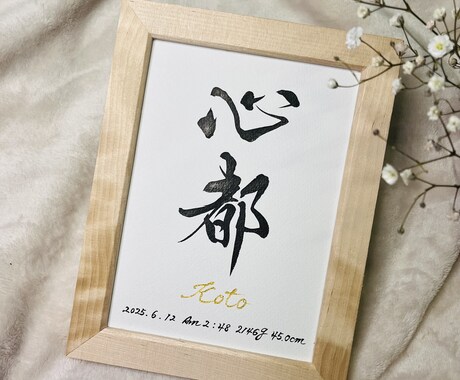 心都
Koto
2025.6.12 Am 2:48 2146g 45.0cm